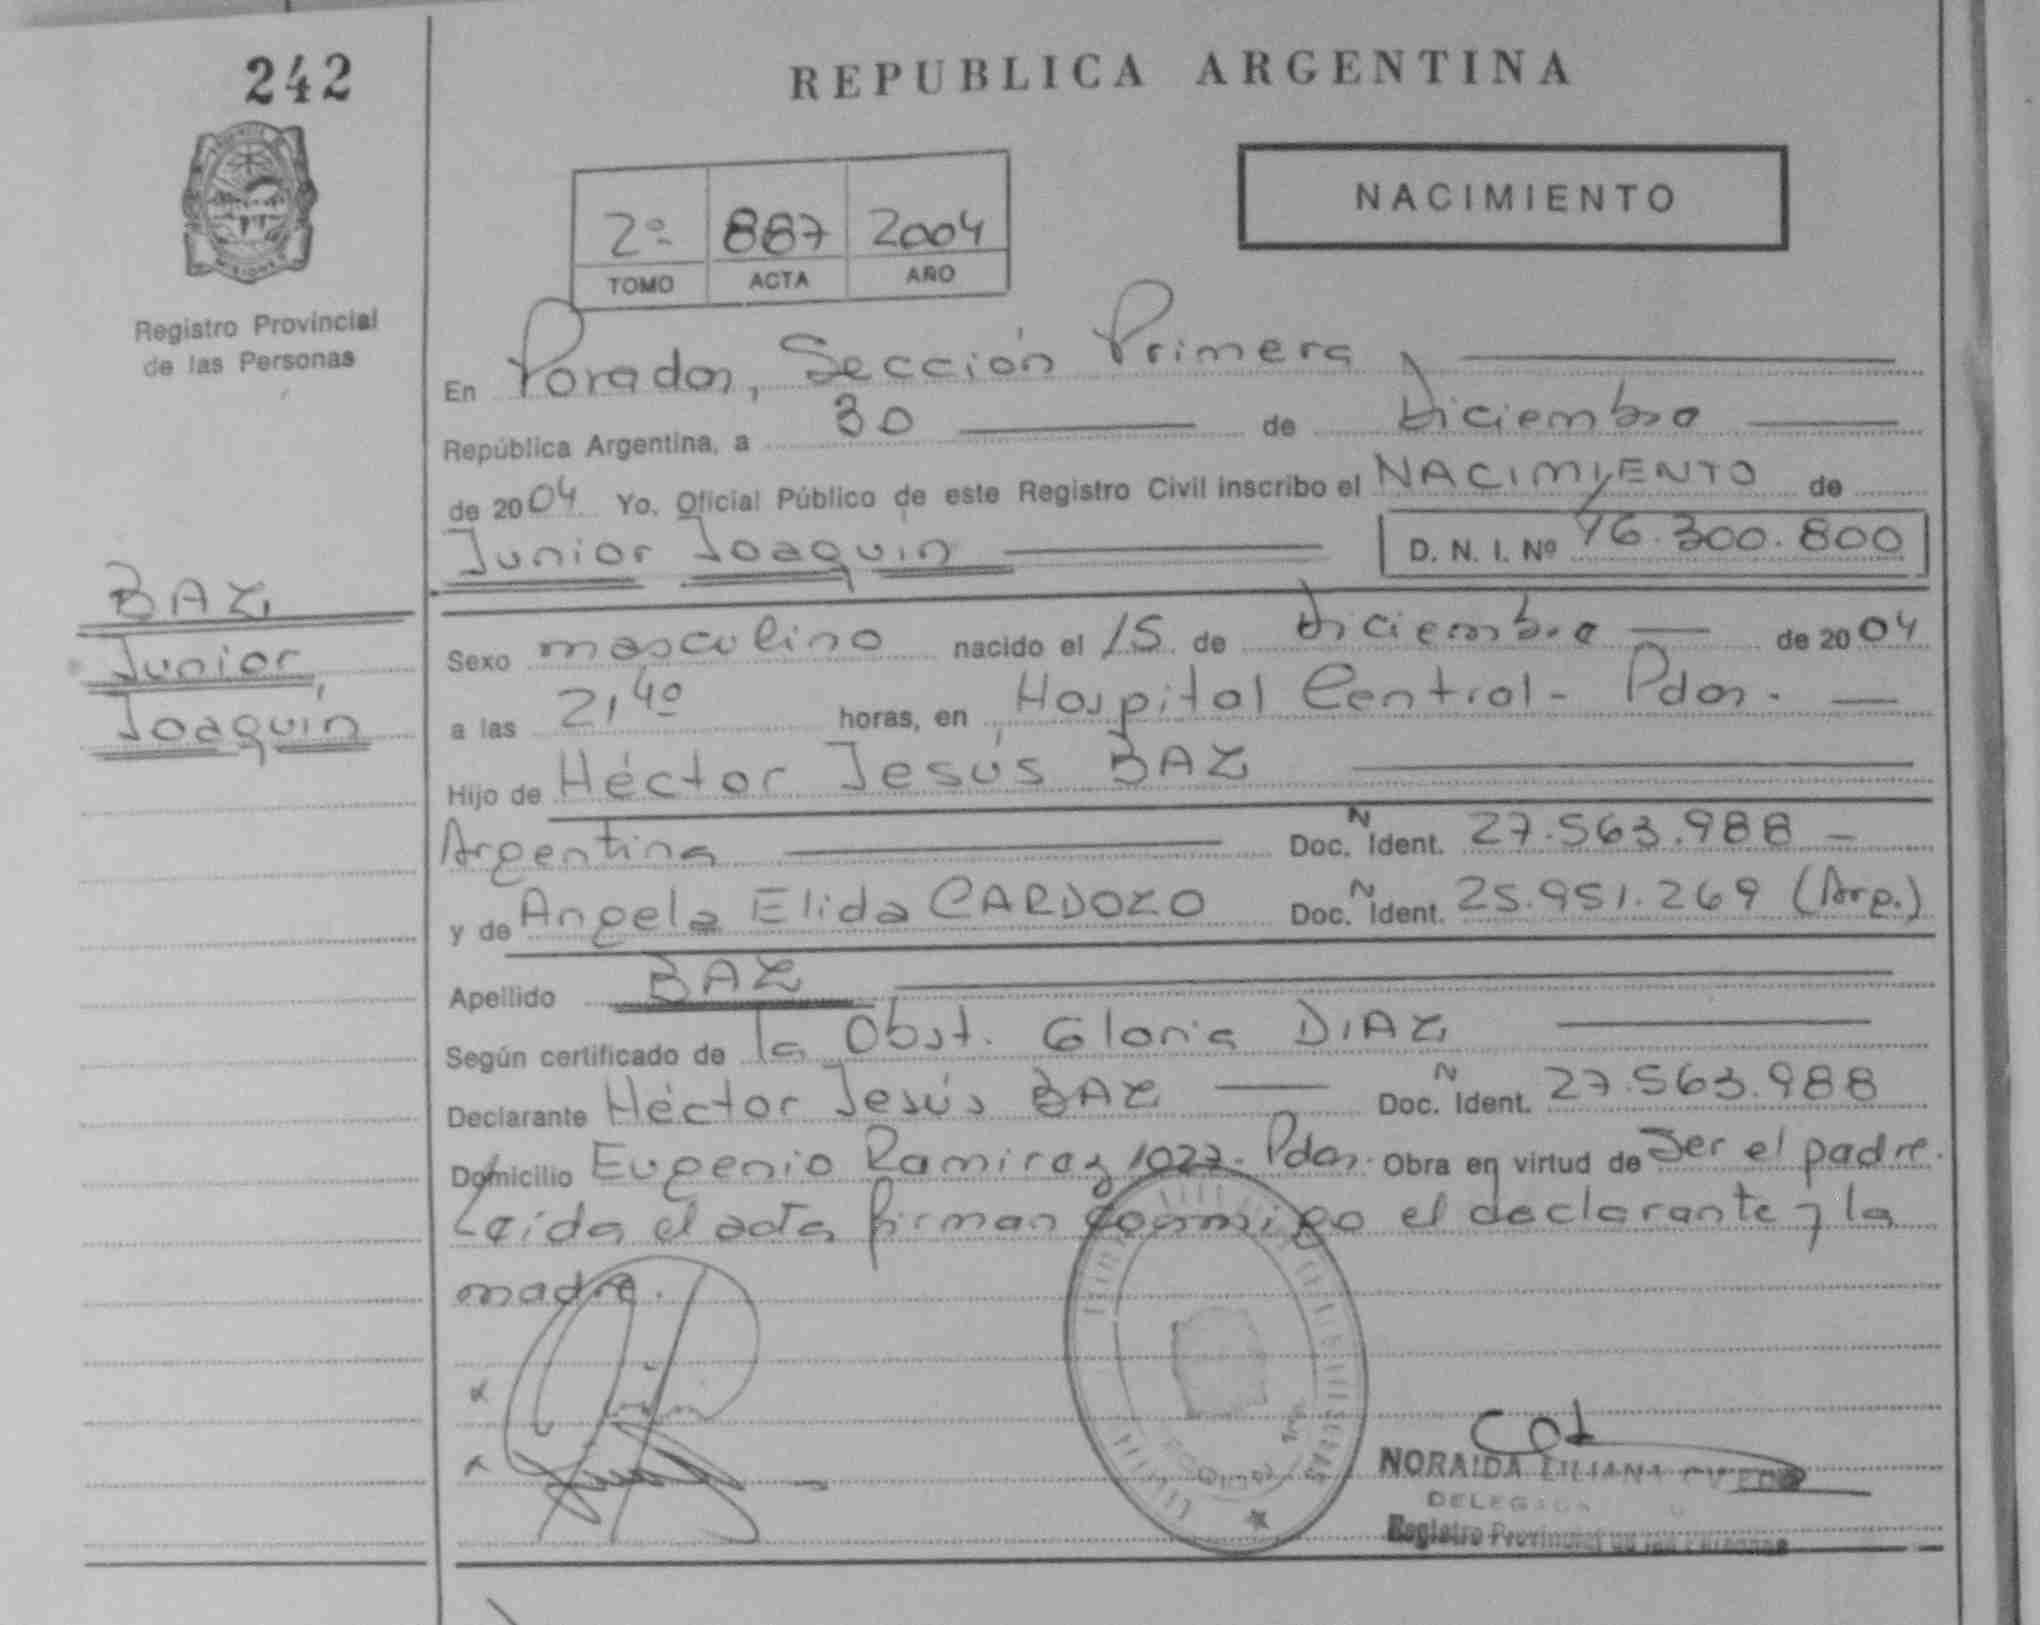 242
REPUBLICA ARGENTINA
NACIMIENTO
2º 887 2004
TOMO ACTA AÑO
MISIONES
Registro Provincial
de las Personas
En Posadas, Sección Primera
República Argentina, a 30 de Diciembre
de 2004 Yo, Oficial Público de este Registro Civil inscribo el NACIMIENTO de
Junior Joaquín D. N. I. Nº 46.300.800
BAZ
Junior
Joaquín
Sexo masculino nacido el 15 de Diciembre de 2004
a las 2,40 horas, en Hospital Central - Pdas.
Hijo de Héctor Jesús BAZ
Argentina Doc. N Ident. 27.563.988
y de Angela Elida CARDOZO Doc. N Ident. 25.951.269 (Arg.)
Apellido BAZ
Según certificado de la Obst. Gloria DIAZ
Declarante Héctor Jesús BAZ Doc. N Ident. 27.563.988
Domicilio Eugenio Ramirez 1027 - Pdas. Obra en virtud de Ser el padre.
Leída el acta firman conmigo el declarante y la
madre.
NORAIDA LILIANA
DELEGADA
Registro Provincial de las Personas